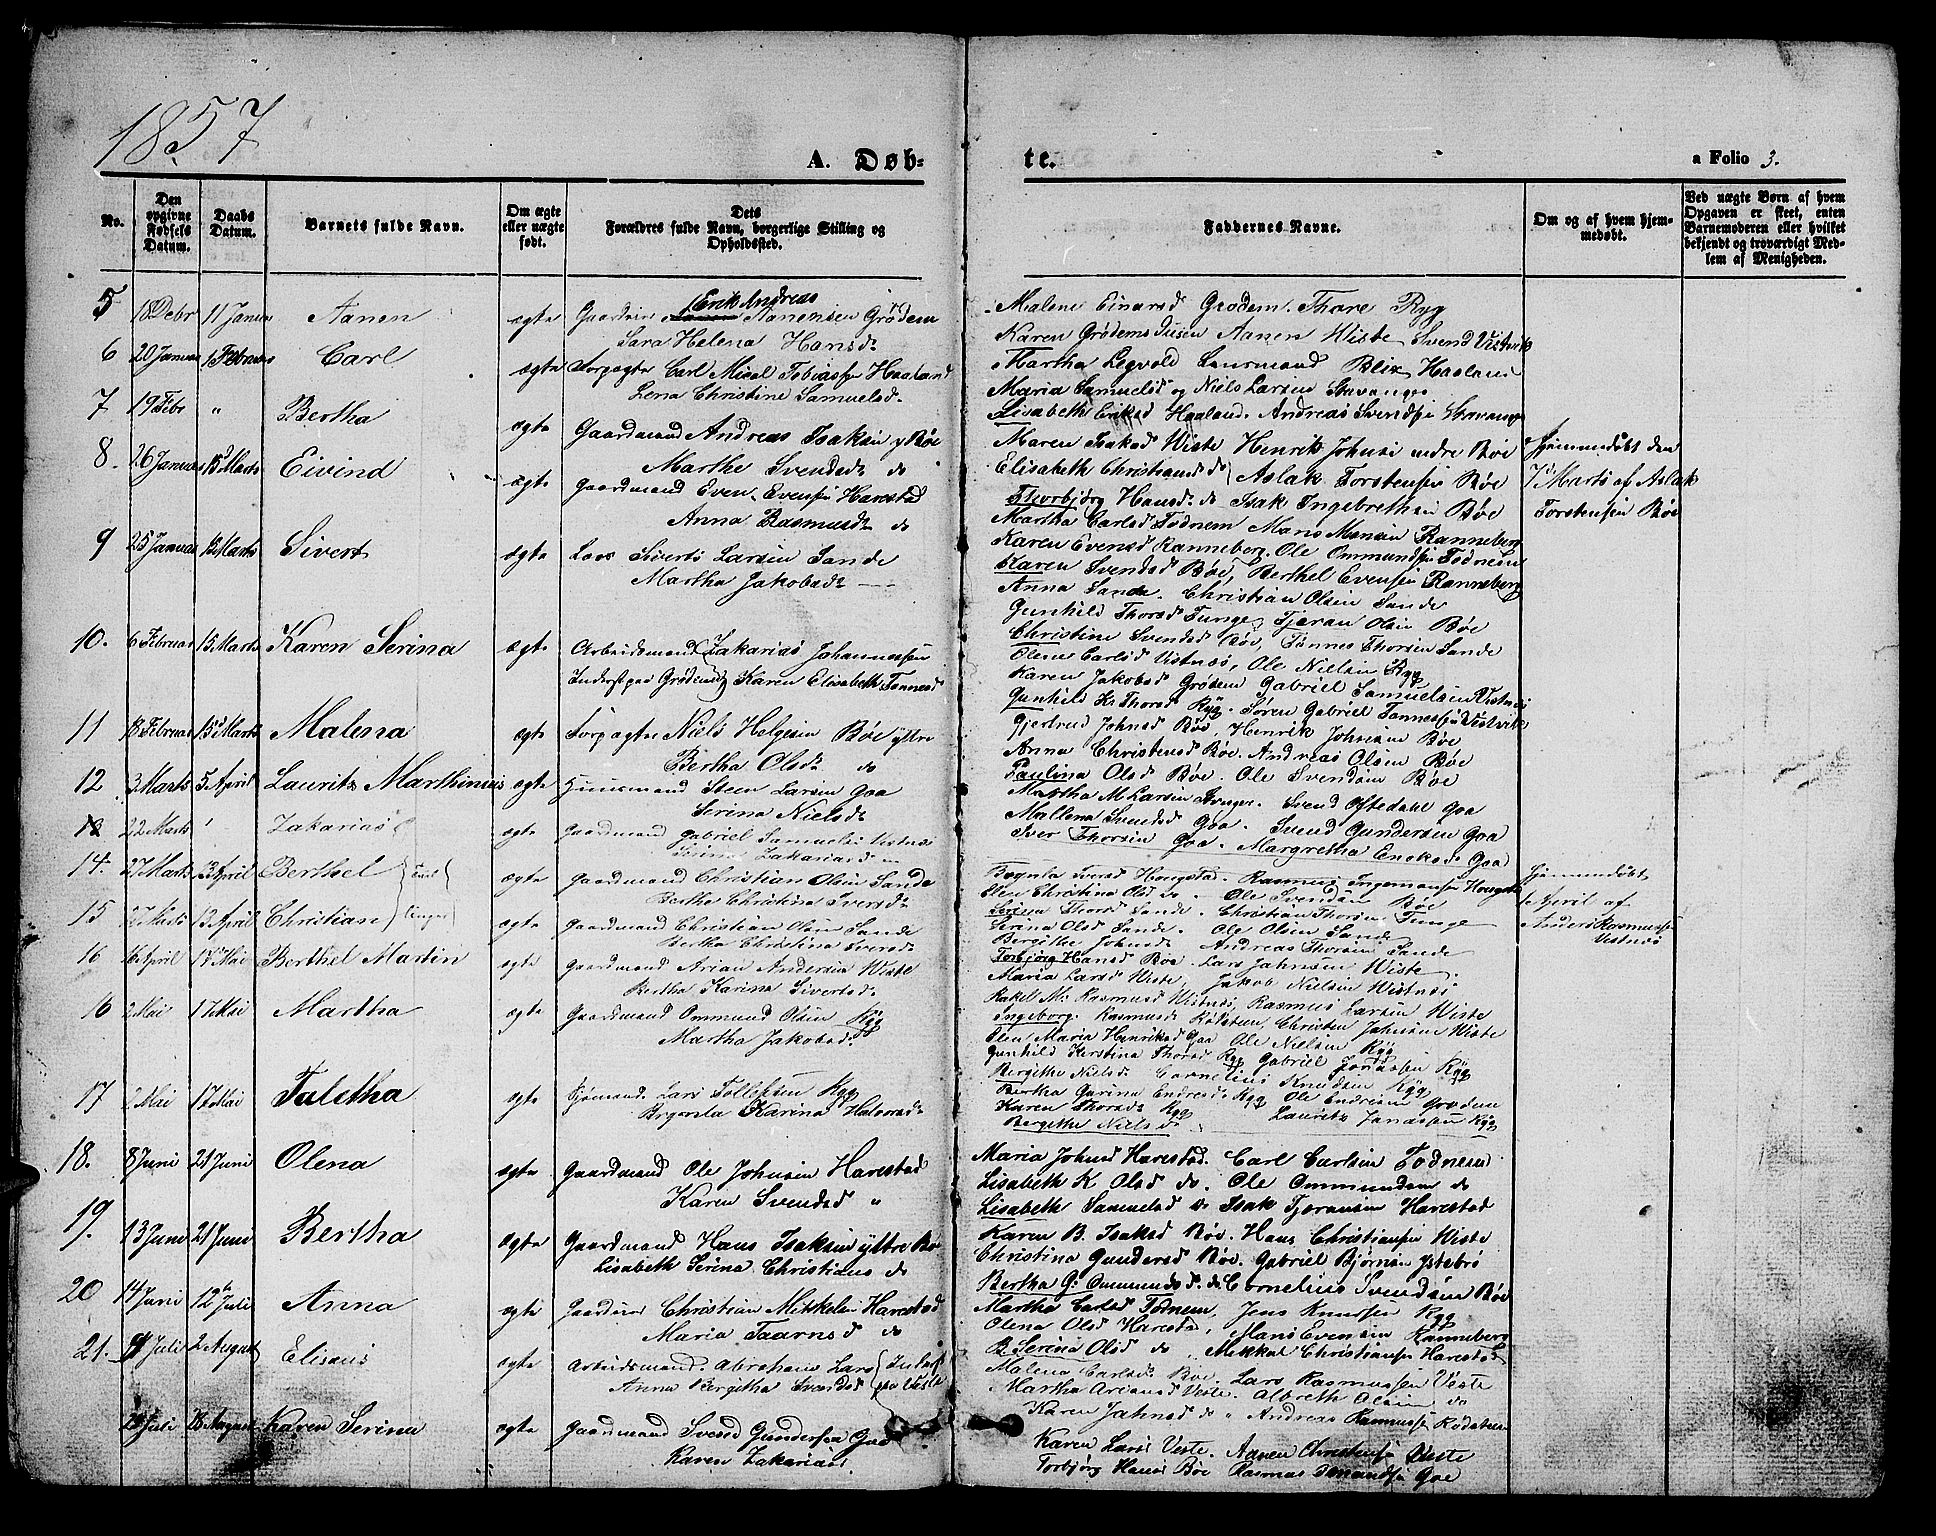 1857
A. Døb-
te.
a Folio 3.
No.
Den opgivne Fødsels Datum.
Daabs Datum.
Barnets fulde Navn.
Om ægte eller uægte født.
Dets Forældres fulde Navn, borgerlige Stilling og Opholdssted.
Faddernes Navne.
Om og af hvem hjemmedøbt.
Ved uægte Børn af hvem Opgaven er skeet, enten Barnemoderen eller hvilket bekjendt og troværdigt Medlem af Menigheden.
5 18 Debr 11 Januar Aanen ægte Erik Andreas Aanensen Grødem
Sara Helena Hansd.
Malene Einarsd Grødem. Thore Ryg
Karen Grødem Aanen Wiste Svend Vistvik
6 20 Januar 1 Februar Carl ægte Forpagter Carl Mical Tobiassen Haaland
Lena Christine Samuelsd.
Martha Legvold Lensmand Blix Haaland
Maria Samuelsd og Niels Larsen Stavanger
7 19 Febr " Bertha ægte Gaardmand Andreas Isaksen y Bøe
Marthe Svendsd do
Lisabeth Eriksd Haaland. Andreas Svendsen
Maren Isaksd Wiste Henrik Johnsen indre Bøe
8. 26 Januar 15 Marts Eivind ægte Gaardmand Even Evensen Harestad
Anna Rasmusd. do
Elisabeth Christiansd do Aslak Torstensen Bøe
Thorbjörg Hansd. do Isak Ingebrethsen Bøe
Martha Carlsd Todnem Mons Monsen Ranneberg
Hjemmedøbt den
7d Marts af Aslak
Torstensen Bøe
9 25 Januar 15 Marts Sivert ægte Loss Siverts Larsen Sande
Martha Jakobsd.
Karen Evensd Ranneberg. Ole Ommundsen Todnem
Karen Svendsd Bøe, Berthel Evensen Ranneberg
Anna Sande. Christian Olsen Sande
Gunhild Thorsd Tunge, Tjeran Olsen Bøe
Christine Svendsd Bøe, Tønnes Thorsen Sande
10. 6 Februar 15 Marts Karen Serina ægte Arbeidsmand Zakarias Johannessen
Grødem Karen Elisabeth Tønnesd
Olene Carlsd Vistnæs, Ole Nielsen Ryg
Karen Jakobsd Grødem Gabriel Samuelsen Vistnæs
Gunhild K. Thorsd Ryg. Søren Gabriel Tønnessen Vistvik
11 18 Februar 15 Marts Malena ægte Forpagter Niels Helgesen Bøe yttre
Bertha Olsd. do
Gjertrud Johnsd Bøe, Henrik Johnsen Bøe
Anna Christensd Bøe. Andreas Olsen Bøe
Paulina Olsd Bøe. Ole Svendsen Bøe
12 3 Marts 5 April Lauritz Marthinius ægte Huusmand Steen Larsen Goa
Serina Nielsd.
Martha M Larsen Svend Oftedahl Goa
Mallena Svendsd Goa. Svend Gundersen Goa
Iver Thorsen Goa. Margretha Goa
13 22 Marts " Zakarias ægte Gaardmand Gabriel Samuelsen Vistnæs
Serina Zakariasd.
14. 27 Marts 13 April Berthel ægte Gaardmand Christian Olsen Sande
Berthe Christina Siversd.
Rasmus Ingemansen
Elen Christina Olsd do. Ole Svendsen Bøe
Hjemmedøbt
1 April af
Anders Rasmussen
Vistnæs
15 27 Marts 13 April Christian ægte Gaardmand Christian Olsen Sande
Bertha Christina Siversd.
Serina Thorsd Sande. Christian Thorsen Tunge
Serina Olsd Sande. Ole Olsen Sande
Bergithe Johnsd. Andreas Thorsen Sande
16 16 April 17 Mai Berthel Martin ægte Gaardmand Arian Andersen Wiste
Bertha Karina Sivertsd.
Torbjörg Hansd Bøe. Lars Jahnsen Wiste
Maria Larsd Wiste, Jakob Nielsen Wistnæs
Rakel M. Rasmusd Wistnæs Rasmus Larsen Wiste
16 2 Mai 17 Mai Martha ægte Gaardmand Ommund Olsen Ryg
Martha Jakobsd.
Ingeborg Rasmusd Rødsteen, Christen Jahnsen Wiste
Elen Maria Henriksd Goa Ole Nielsen Ryg
Gunhild Kerstina Thorsd Ryg Gabriel Jonassen Ryg
17 2 Mai 17 Mai Taletha ægte Sjømand Lars Tollefsen Ryg
Brynla Karina Halvorsd.
Bergithe Nielsd. Cornelius Knudsen Ryg
Bertha Gurina Endresd. Ryg Ole Endresen Grødem
Karen Thorsd. Ryg Lauritz Jonassen Ryg
Bergithe Nielsd.
18. 8 Juni 21 Juni Olena ægte Gaardmand Ole Johnsen Harestad
Karen Svendsd "
Maria Johnsd Harestad. Carl Carlsen Todnem
Lisabeth K Olsd do. Ole Ommundsen do
Lisabeth Samuelsd do Isak Tjeransen Harestad
19. 13 Juni 21 Juni Bertha ægte Gaardmand Hans Isaksen yttre Bøe
Lisabeth Serina Christians do
Karen B. Isaksd Bøe. Hans Christiansen Wiste
Christina Gundersd Bøe. Gabriel Bjørnsen Ystebø
Bertha G. Ommundsd. do Cornelius Svendsen Bøe
20 14 Juni 12te Juli Anna ægte Christian Mikkelsen Harestad
Maria Taarnsd do
Martha Carlsd Todnem, Jens Knudsen Ryg
Olena Olsd Harestad, Mons Evensen Ranneberg
B. Serina Olsd do, Mikkal Christiansen Harestad
21. Juli 2 August Elisæus ægte Arbeidsmand Abraham Lars
Anna Bergitha Svendsd paa Viste
Malena Carlsd Bøe. Lars Rasmussen Veste
Martha Ariansd Veste. Albreth Olsen do
Karen Jahnsd do " Andreas Rasmussen Rødsteen
Juli August Karen Serina ægte Gaardmand Svend Gundersen Goa
Karen Zakariasd
Karen Larsd Veste. Aanen Christensen Veste
Torbjörg Hansd Bøe Rasmus Goa